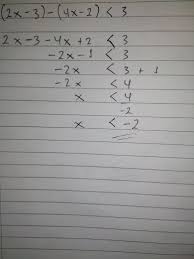 (2x-3)-(4x-2) < 3
2x-3-4x+2 < 3
-2x-1 < 3
-2x < 3+1
-2x < 4
x < 4
-2
x < -2